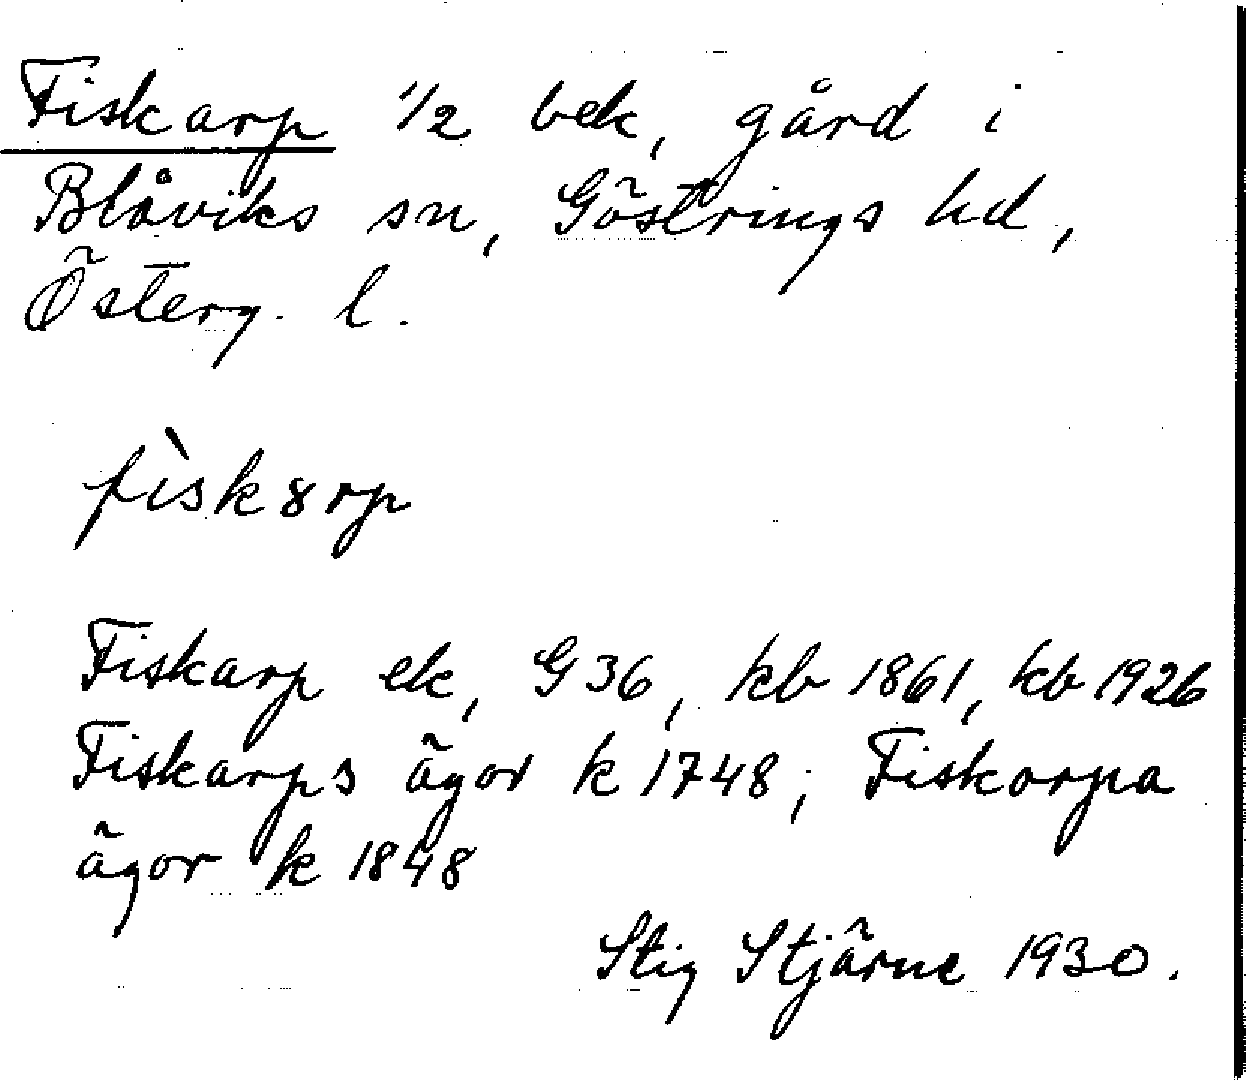 Fiskarp 1/2 bek, gård i
Blåviks sn, Göstrings hd,
Österg. l.
fìsk8rp
Fiskarp ek, G 36, kb 1861, kb 1926
Fiskarps ägor k 1748; Fiskorpa
ägor k 1848
Stig Stjärne 1930.